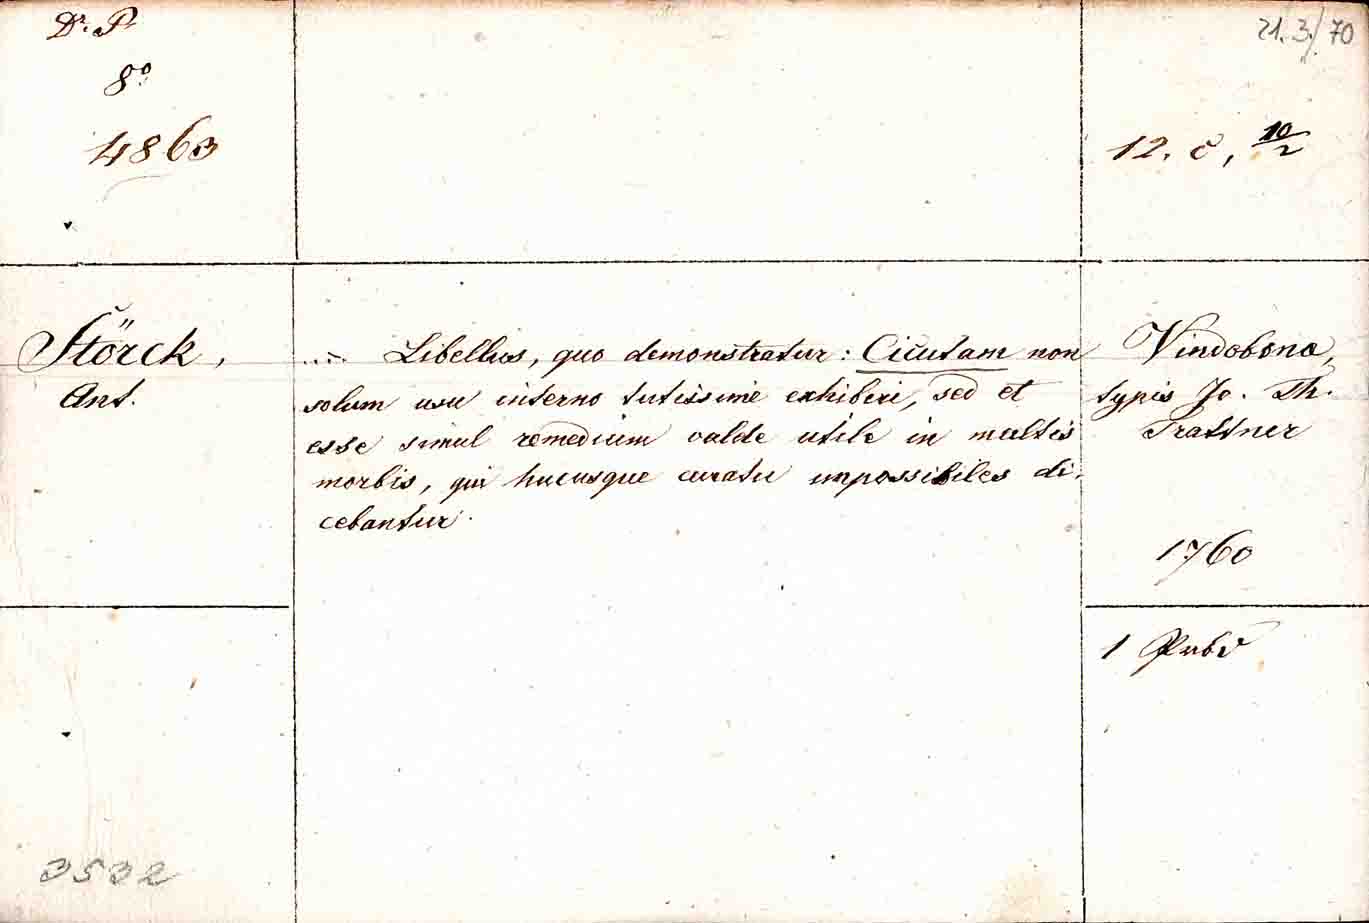 Dr. P
8º
4863
21.3./70
12. c, 10/2
Störck,
Ant.
... Libellus, quo demonstratur: Cicutam non
solum usu interno tutissime exhiberi, sed et
esse simul remedium valde utile in multis
morbis, qui hucusque curatu impossibiles di-
cebantur.
Vindobona,
typis Jo. Th.
Trattner
1760
1 Pubd
3532